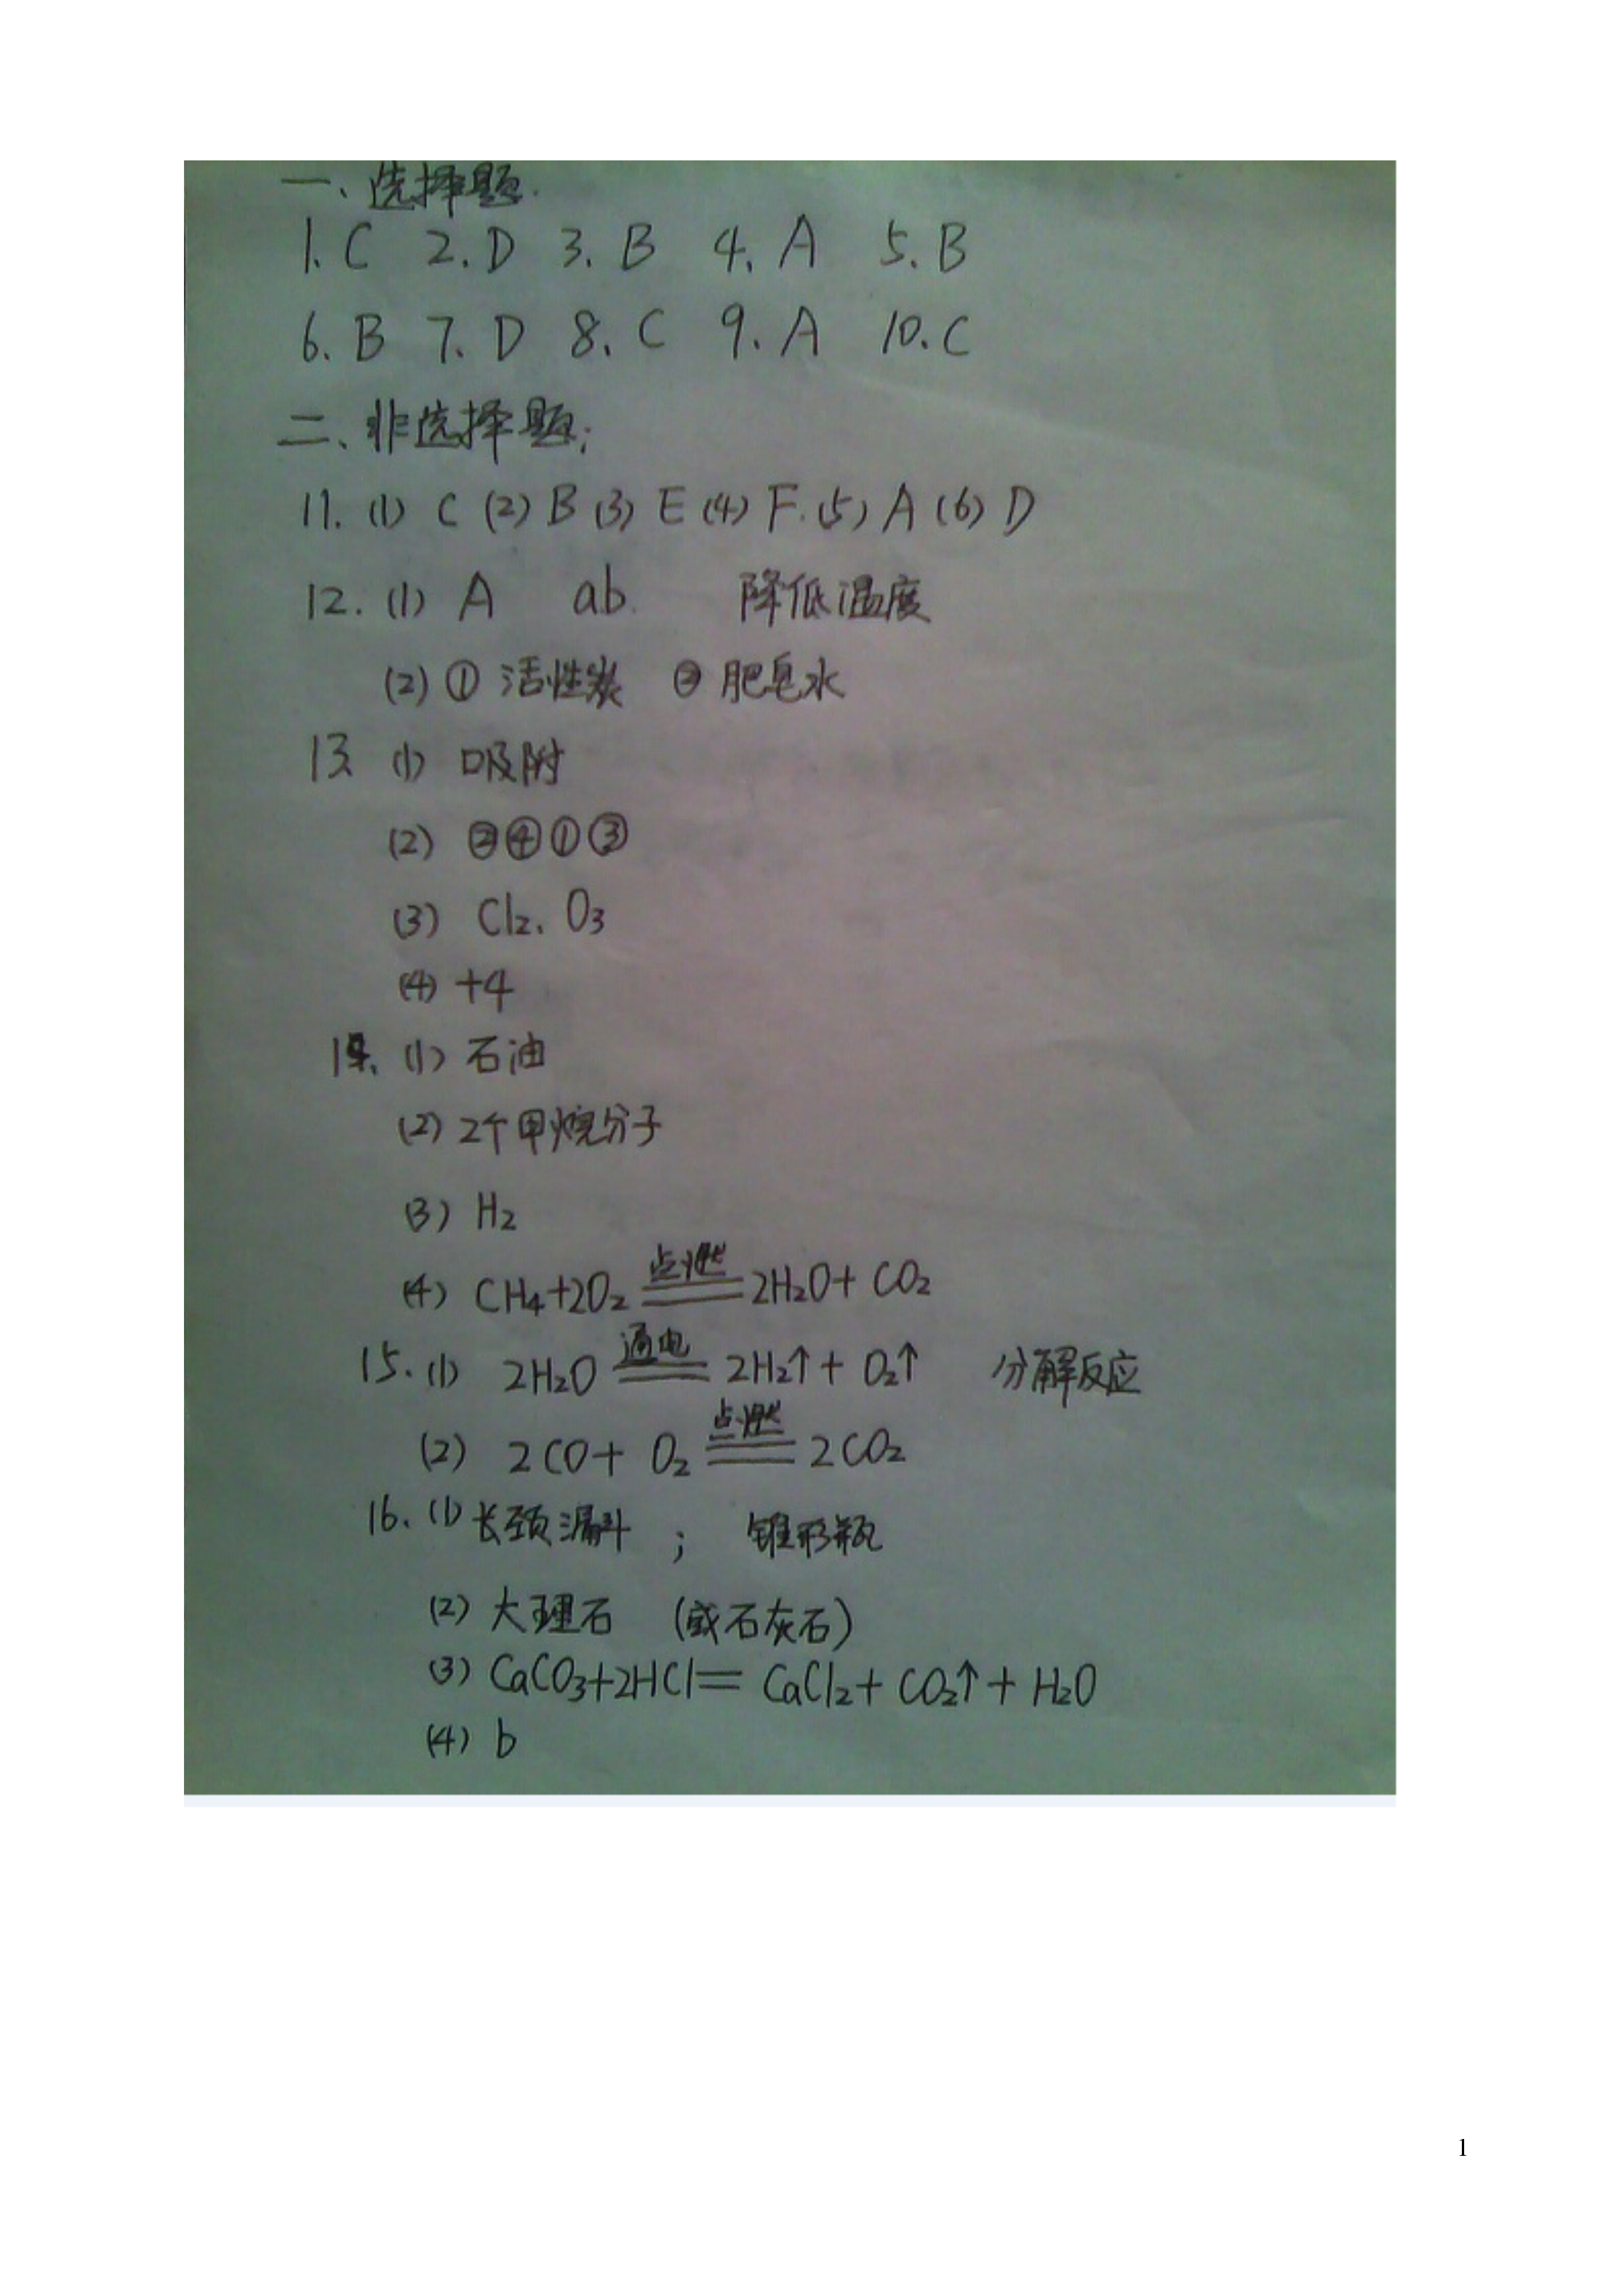 一、选择题.
1. C 2. D 3. B 4. A 5. B
6. B 7. D 8. C 9. A 10. C
二、非选择题;
11. (1) C (2) B (3) E (4) F. (5) A (6) D
12. (1) A ab. 降低温度
(2) ① 活性炭 ② 肥皂水
13. (1) 吸附
(2) ②④①③
(3) Cl₂、O₃
(4) +4
14. (1) 石油
(2) 2个甲烷分子
(3) H₂
(4) CH₄+2O₂ 点燃══ 2H₂O+ CO₂
15. (1) 2H₂O 通电══ 2H₂↑+ O₂↑ 分解反应
(2) 2CO+ O₂ 点燃══ 2CO₂
16. (1) 长颈漏斗 ; 锥形瓶
(2) 大理石 (或石灰石)
(3) CaCO₃+2HCl══ CaCl₂+ CO₂↑+ H₂O
(4) b
1